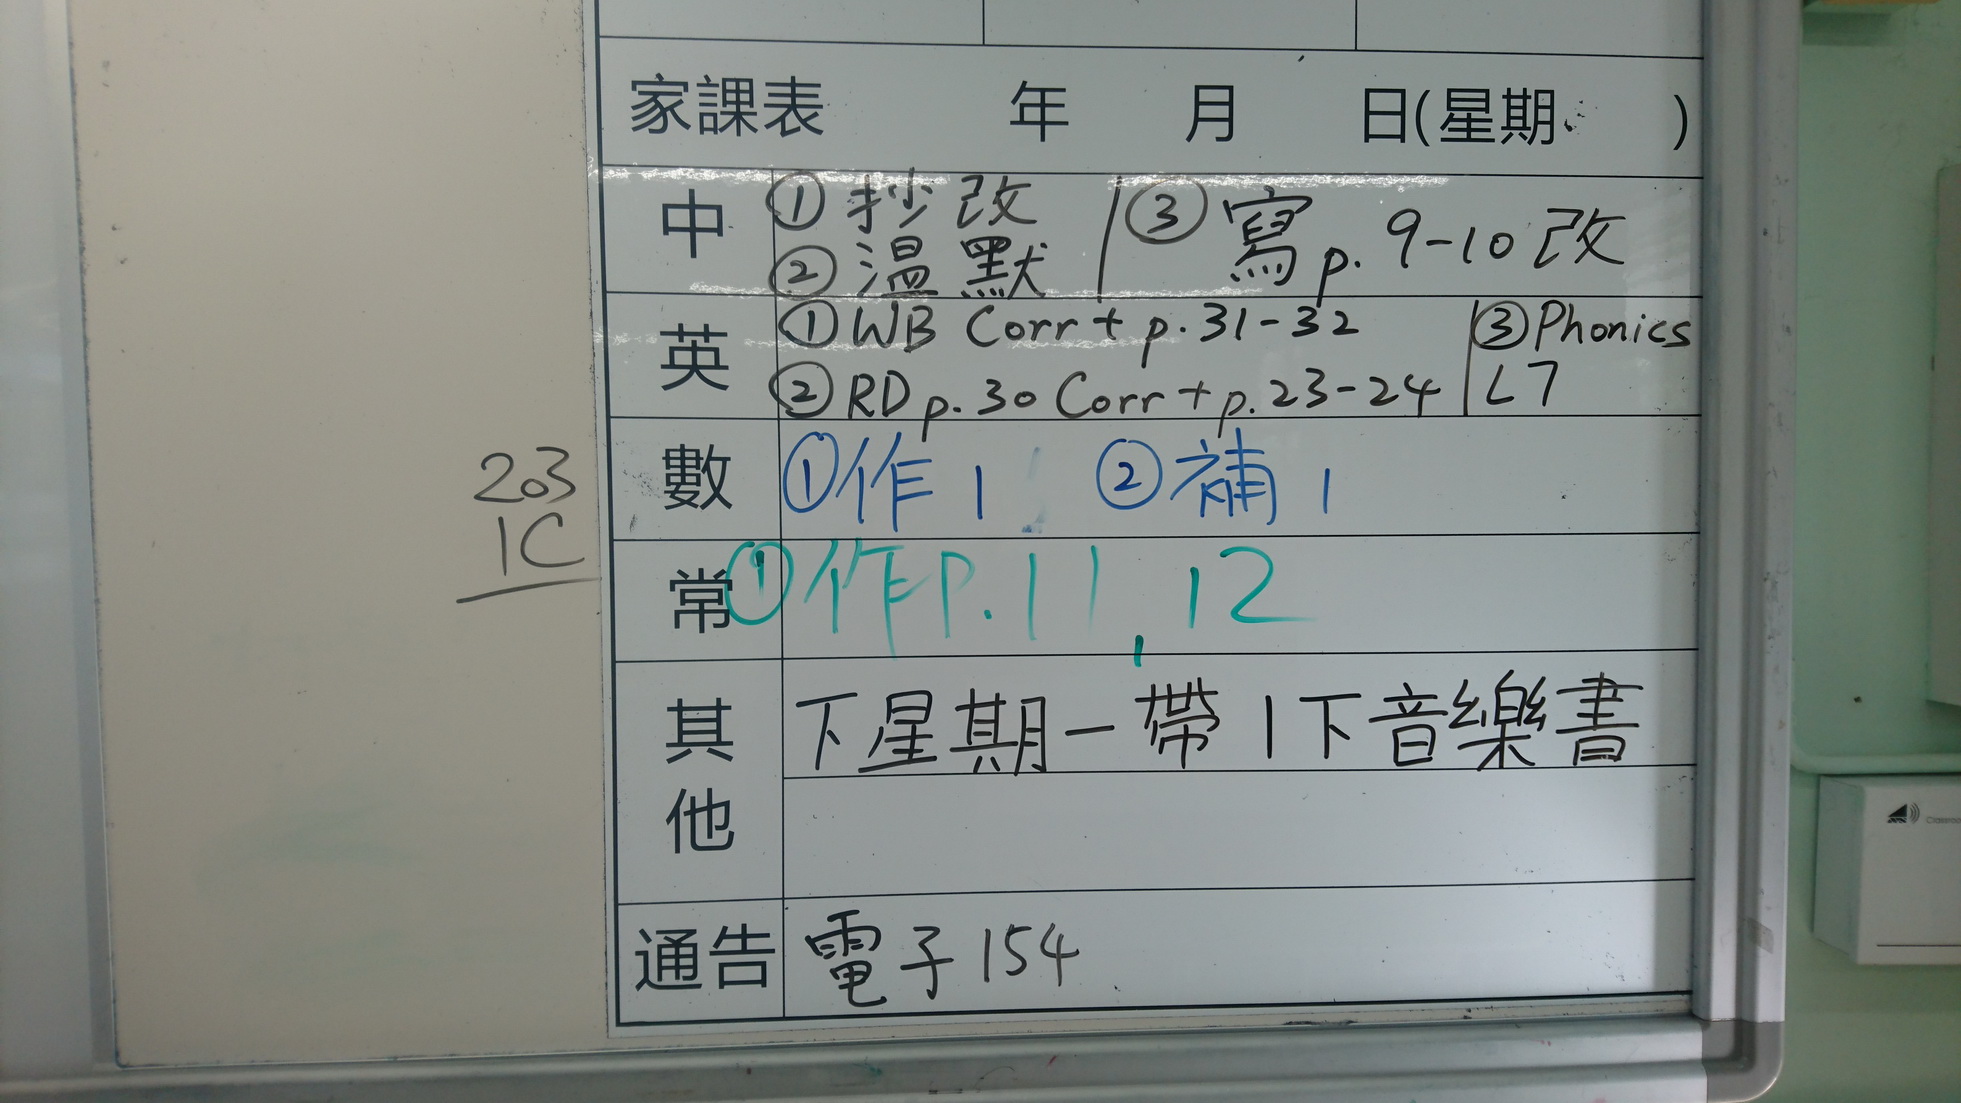 家課表 年 月 日(星期 )
中 ①抄改 ③寫p.9-10改
②溫默
英 ①WB Corr + p.31-32 ③Phonics
②RD p.30 Corr + p.23-24 L7
數 ①作1 ②補1
203
1C
常 ①作P.11,12
其他 下星期一帶1下音樂書
通告 電子154